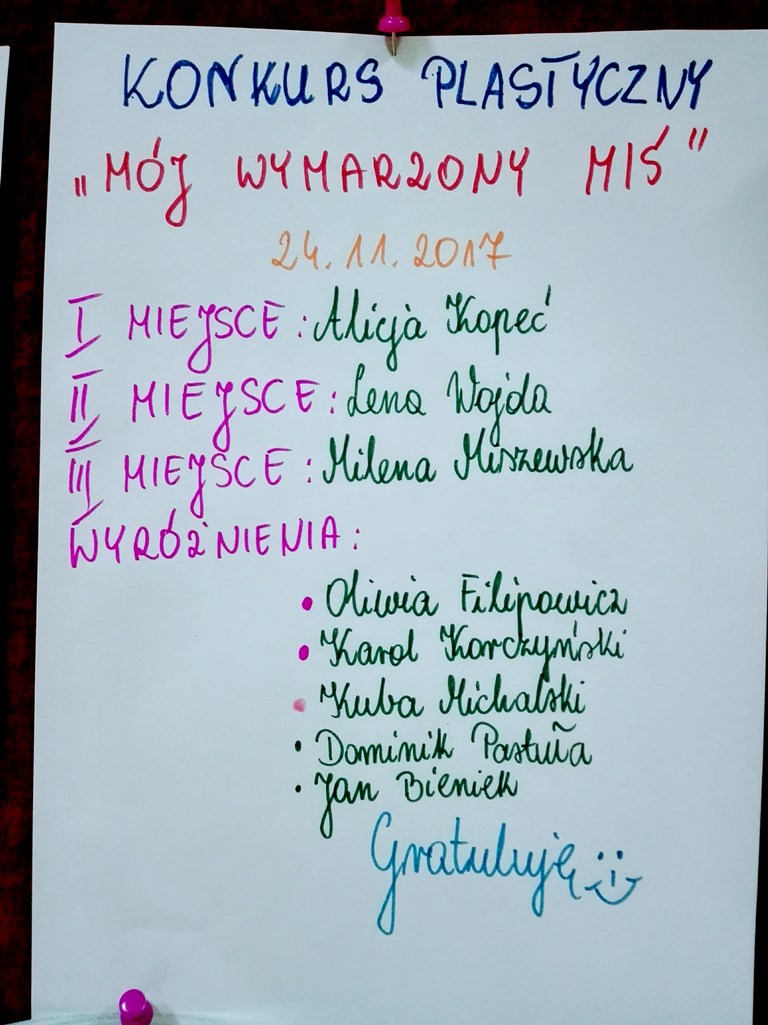 KONKURS PLASTYCZNY
„MÓJ WYMARZONY MIŚ"
24.11.2017
I MIEJSCE: Alicja Kopeć
II MIEJSCE: Lena Wojda
III MIEJSCE: Milena Miszewska
WYRÓŻNIENIA:
• Oliwia Filipowicz
• Karol Korczyński
• Kuba Michalski
• Dominik Pastuła
• Jan Bieniek
Gratuluję